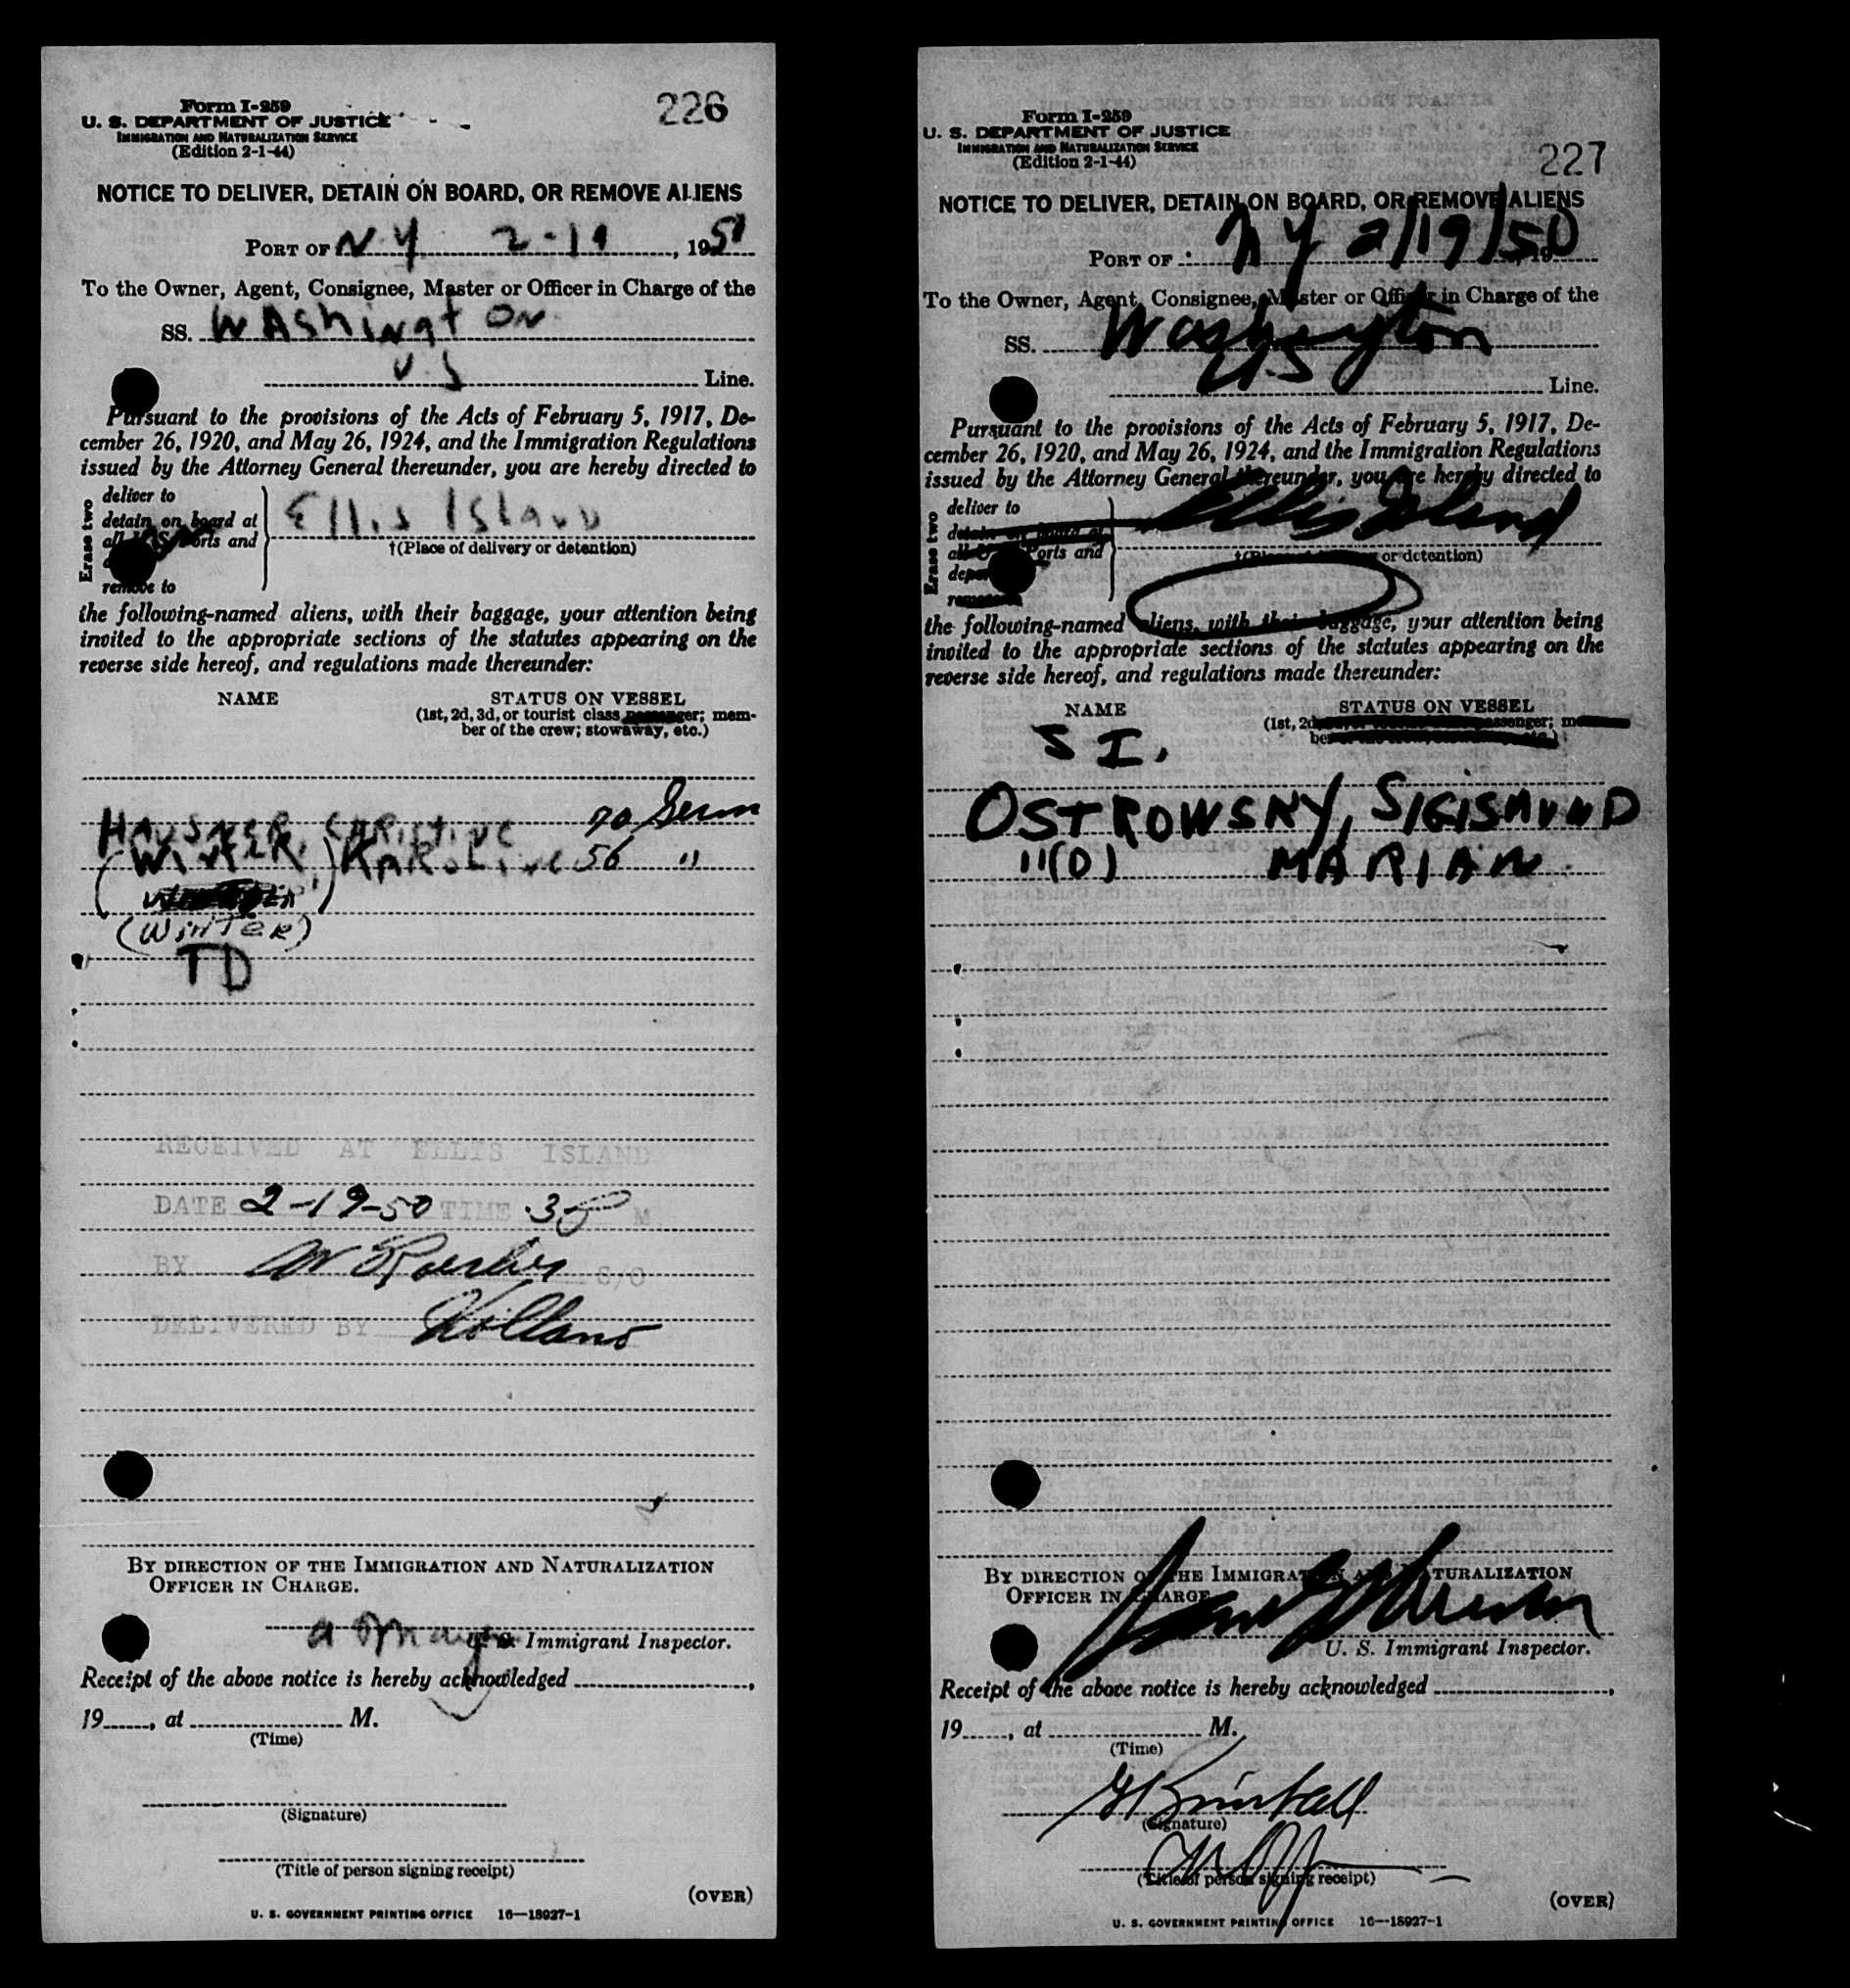 226
Form I-259
U. S. DEPARTMENT OF JUSTICE
IMMIGRATION AND NATURALIZATION SERVICE
(Edition 2-1-44)
NOTICE TO DELIVER, DETAIN ON BOARD, OR REMOVE ALIENS
PORT OF N.Y 2-19, 1950
To the Owner, Agent, Consignee, Master or Officer in Charge of the
SS. WAshington
U.S Line.
Pursuant to the provisions of the Acts of February 5, 1917, De-
cember 26, 1920, and May 26, 1924, and the Immigration Regulations
issued by the Attorney General thereunder, you are hereby directed to
Erase two
deliver to
detain on board at
all U.S. ports and
remove to
Ellis Island
†(Place of delivery or detention)
the following-named aliens, with their baggage, your attention being
invited to the appropriate sections of the statutes appearing on the
reverse side hereof, and regulations made thereunder:
NAME STATUS ON VESSEL
(1st, 2d, 3d, or tourist class passenger; mem-
ber of the crew; stowaway, etc.)
HAUSNER, CHRISTINE 70 Germ
(WINTER) KAROLINE 56 "
(WINTER)
TD
RECEIVED AT ELLIS ISLAND
DATE 2-19-50 TIME M
BY S/O
DELIVERED BY Holland
BY DIRECTION OF THE IMMIGRATION AND NATURALIZATION
OFFICER IN CHARGE.
U. S. Immigrant Inspector.
Receipt of the above notice is hereby acknowledged
19 , at M.
(Time)
(Signature)
(Title of person signing receipt)
(OVER)
U. S. GOVERNMENT PRINTING OFFICE 16—18927-1
Form I-259
U. S. DEPARTMENT OF JUSTICE
IMMIGRATION AND NATURALIZATION SERVICE
(Edition 2-1-44)
227
NOTICE TO DELIVER, DETAIN ON BOARD, OR REMOVE ALIENS
PORT OF NY 2/19/50
To the Owner, Agent, Consignee, Master or Officer in Charge of the
SS. Washington
U.S Line.
Pursuant to the provisions of the Acts of February 5, 1917, De-
cember 26, 1920, and May 26, 1924, and the Immigration Regulations
issued by the Attorney General thereunder, you are hereby directed to
Erase two
deliver to
detain on board at
all U.S. ports and
remove to
Ellis Island
†(Place of delivery or detention)
the following-named aliens, with their baggage, your attention being
invited to the appropriate sections of the statutes appearing on the
reverse side hereof, and regulations made thereunder:
NAME STATUS ON VESSEL
(1st, 2d, passenger;
S I.
OSTROWSKY, SIGISMUND
"(D) MARIAN
BY DIRECTION OF THE IMMIGRATION AND NATURALIZATION
OFFICER IN CHARGE
U. S. Immigrant Inspector.
Receipt of the above notice is hereby acknowledged
19 , at M.
(Time)
(Signature)
(Title of person signing receipt)
(OVER)
U. S. GOVERNMENT PRINTING OFFICE 16—18927-1